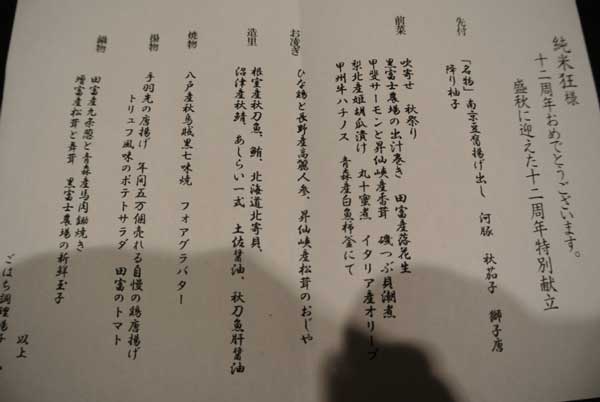 純米狂様
十二周年おめでとうございます。
盛秋に迎えた十二周年特別献立
先付
「名物」南京豆腐揚げ出し 河豚 秋茄子 獅子唐
降り柚子
前菜
吹寄せ 秋祭り
黒富士農場の出汁巻き 田富産落花生
甲斐サーモンと昇仙峡産香茸 磯つぶ貝潮煮
梨北産姫胡瓜漬け 丸十蜜煮 イタリア産オリーブ
甲州牛ハチノス 青森産白魚柿釜にて
お凌ぎ
ひな鶏と長野産高麗人参、昇仙峡産松茸のおじや
造里
根室産秋刀魚、鮪、北海道北寄貝、
沼津産秋鯖、あしらい一式 土佐醤油、秋刀魚肝醤油
焼物
八戸産秋烏賊黒七味焼 フォアグラバター
揚物
手羽先の唐揚げ 年間五万個売れる自慢の鶏唐揚げ
トリュフ風味のポテトサラダ 田富のトマト
鍋物
田富産九条葱と青森産馬肉鋤焼き
増富産松茸と舞茸 黒富士農場の新鮮玉子
以上
ごはち調理場子